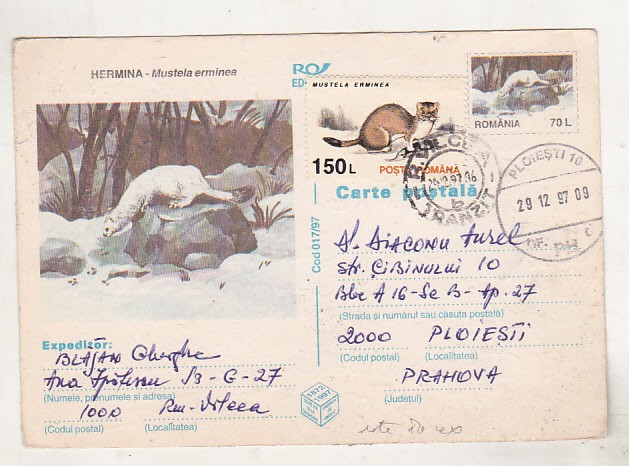 HERMINA - Mustela erminea
RO
ED
MUSTELA ERMINEA
150 L
POȘTA ROMÂNĂ
ROMÂNIA 70 L
PLOIEȘTI 10
29 12 97 09
TRANZIT
Carte poștală
Cod 017/97
Dl. DIACONU Aurel
str. CIBINULUI 10
Bloc A 16 - Sc B - Ap. 27
(Strada și numărul sau căsuța poștală)
2000 PLOIEȘTI
(Codul poștal) (Localitatea)
PRAHOVA
(Județul)
Expeditor:
BLĂJAN Gheorghe
Ana Ipătescu 13 - C - 27
(Numele, prenumele și adresa)
1000 Rm-Vîlcea
(Codul poștal) (Localitatea)
1872
1997